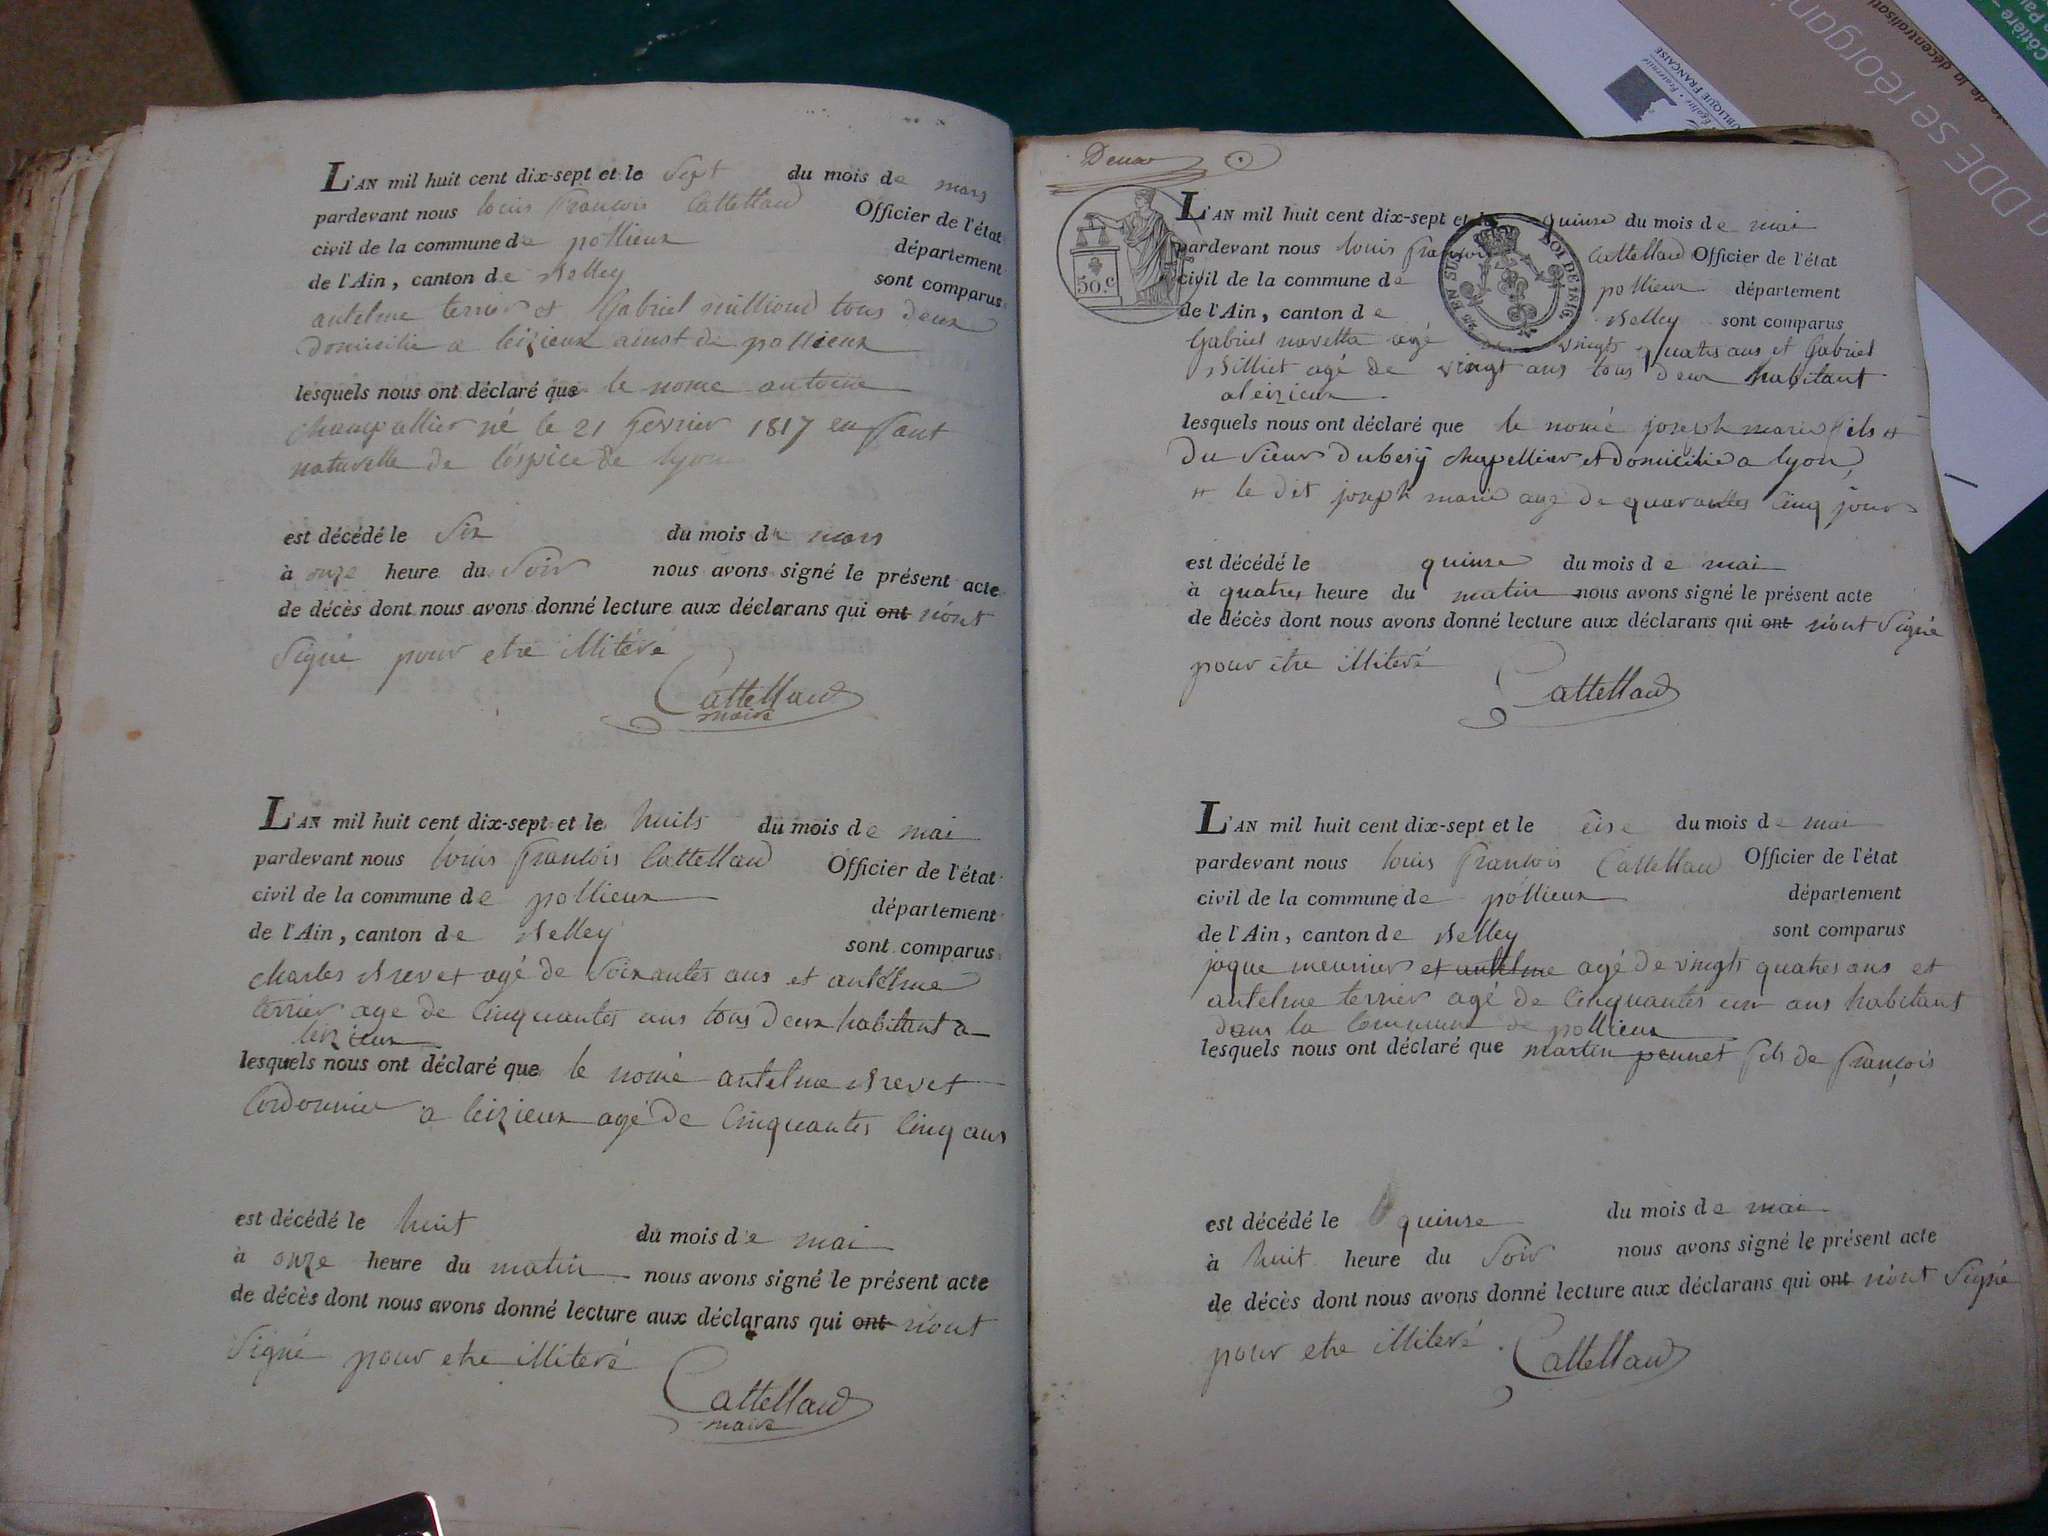 L'AN mil huit cent dix-sept et le Sept du mois de mars
pardevant nous louis francois Cattelland Officier de l'état
civil de la commune de pollieux département
de l'Ain, canton de Belley sont comparus
antelme terrier et Gabriel milliond tous deux
domicilie a leizieux de pollieux
lesquels nous ont déclaré que le nome antoine
champallier né le 21 fevrier 1817 enffant
naturelle de l'ospice de lyon
est décédé le Six du mois de mars
à onze heure du Soir nous avons signé le présent acte
de décès dont nous avons donné lecture aux déclarans qui ont n'ont
Signé pour etre illitéré
Cattelland
maire
L'AN mil huit cent dix-sept et le huits du mois de mai
pardevant nous louis francois Cattelland Officier de l'état
civil de la commune de pollieux département
de l'Ain, canton de Belley sont comparus
charles Brevet agé de Soixantes ans et antelme
terrier age de Cinquantes ans tous deux habitant a
leizieux
lesquels nous ont déclaré que le nomé antelme Brevet
Cordonnier a leizieux agé de Cinquantes Cinq ans
est décédé le huit du mois de mai
à onze heure du matin nous avons signé le présent acte
de décès dont nous avons donné lecture aux déclarans qui ont n'ont
Signé pour etre illiteré
Cattelland
maire
Deux
50.c
25 EN SUS LOI DE 1816
L'AN mil huit cent dix-sept et le quinse du mois de mai
pardevant nous louis francois Cattelland Officier de l'état
civil de la commune de pollieux département
de l'Ain, canton de Belley sont comparus
Gabriel novetta agé vingts quatres ans et Gabriel
Billiet agé de vingt ans tous deux habitant
a leizieux
lesquels nous ont déclaré que le nomé joseph marie fils +
du Sieur Dubesy chapellier et domicilié a lyon
+ le dit joseph marie agé de quarantes Cinq jours
est décédé le quinse du mois de mai
à quatres heure du matin nous avons signé le présent acte
de décès dont nous avons donné lecture aux déclarans qui ont n'ont Signé
pour etre illiteré
Cattelland
L'AN mil huit cent dix-sept et le du mois de mai
pardevant nous louis francois Cattelland Officier de l'état
civil de la commune de pollieux département
de l'Ain, canton de Belley sont comparus
jaque meunier et antelme agé de vingts quatres ans et
antelme terrier agé de Cinquantes un ans habitant
dans la Commune de pollieux
lesquels nous ont déclaré que martin peunet fils de françois
est décédé le quinse du mois de mai
à huit heure du Soir nous avons signé le présent acte
de décès dont nous avons donné lecture aux déclarans qui ont n'ont Signé
pour etre illiteré.
Cattelland
Fraternité
UBLIQUE FRANÇAISE
DDE se réorgani
de la décentralisati
Côtière